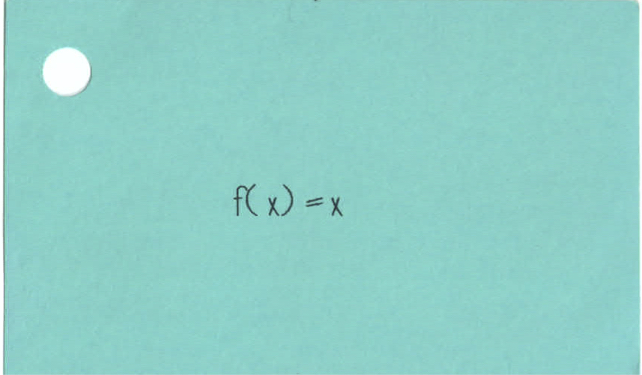 f(x) = x